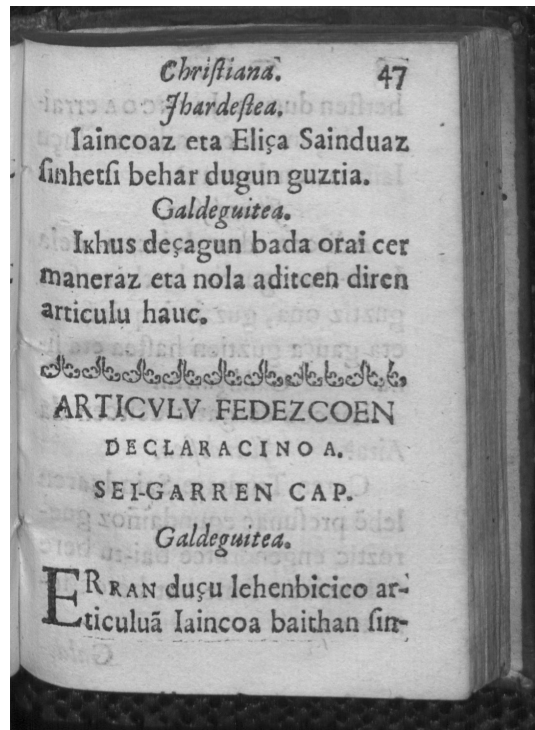 Chriſtiana. 47
Ihardeſtea.
Iaincoaz eta Eliça Sainduaz
ſinhetſi behar dugun guztia.
Galdeguitea.
Ikhus deçagun bada orai cer
maneraz eta nola aditcen diren
articulu hauc.
ARTICVLV FEDEZCOEN
DECLARACINOA.
SEI-GARREN CAP.
Galdeguitea.
ERRAN duçu lehenbicico ar-
ticuluã Iaincoa baithan ſin-